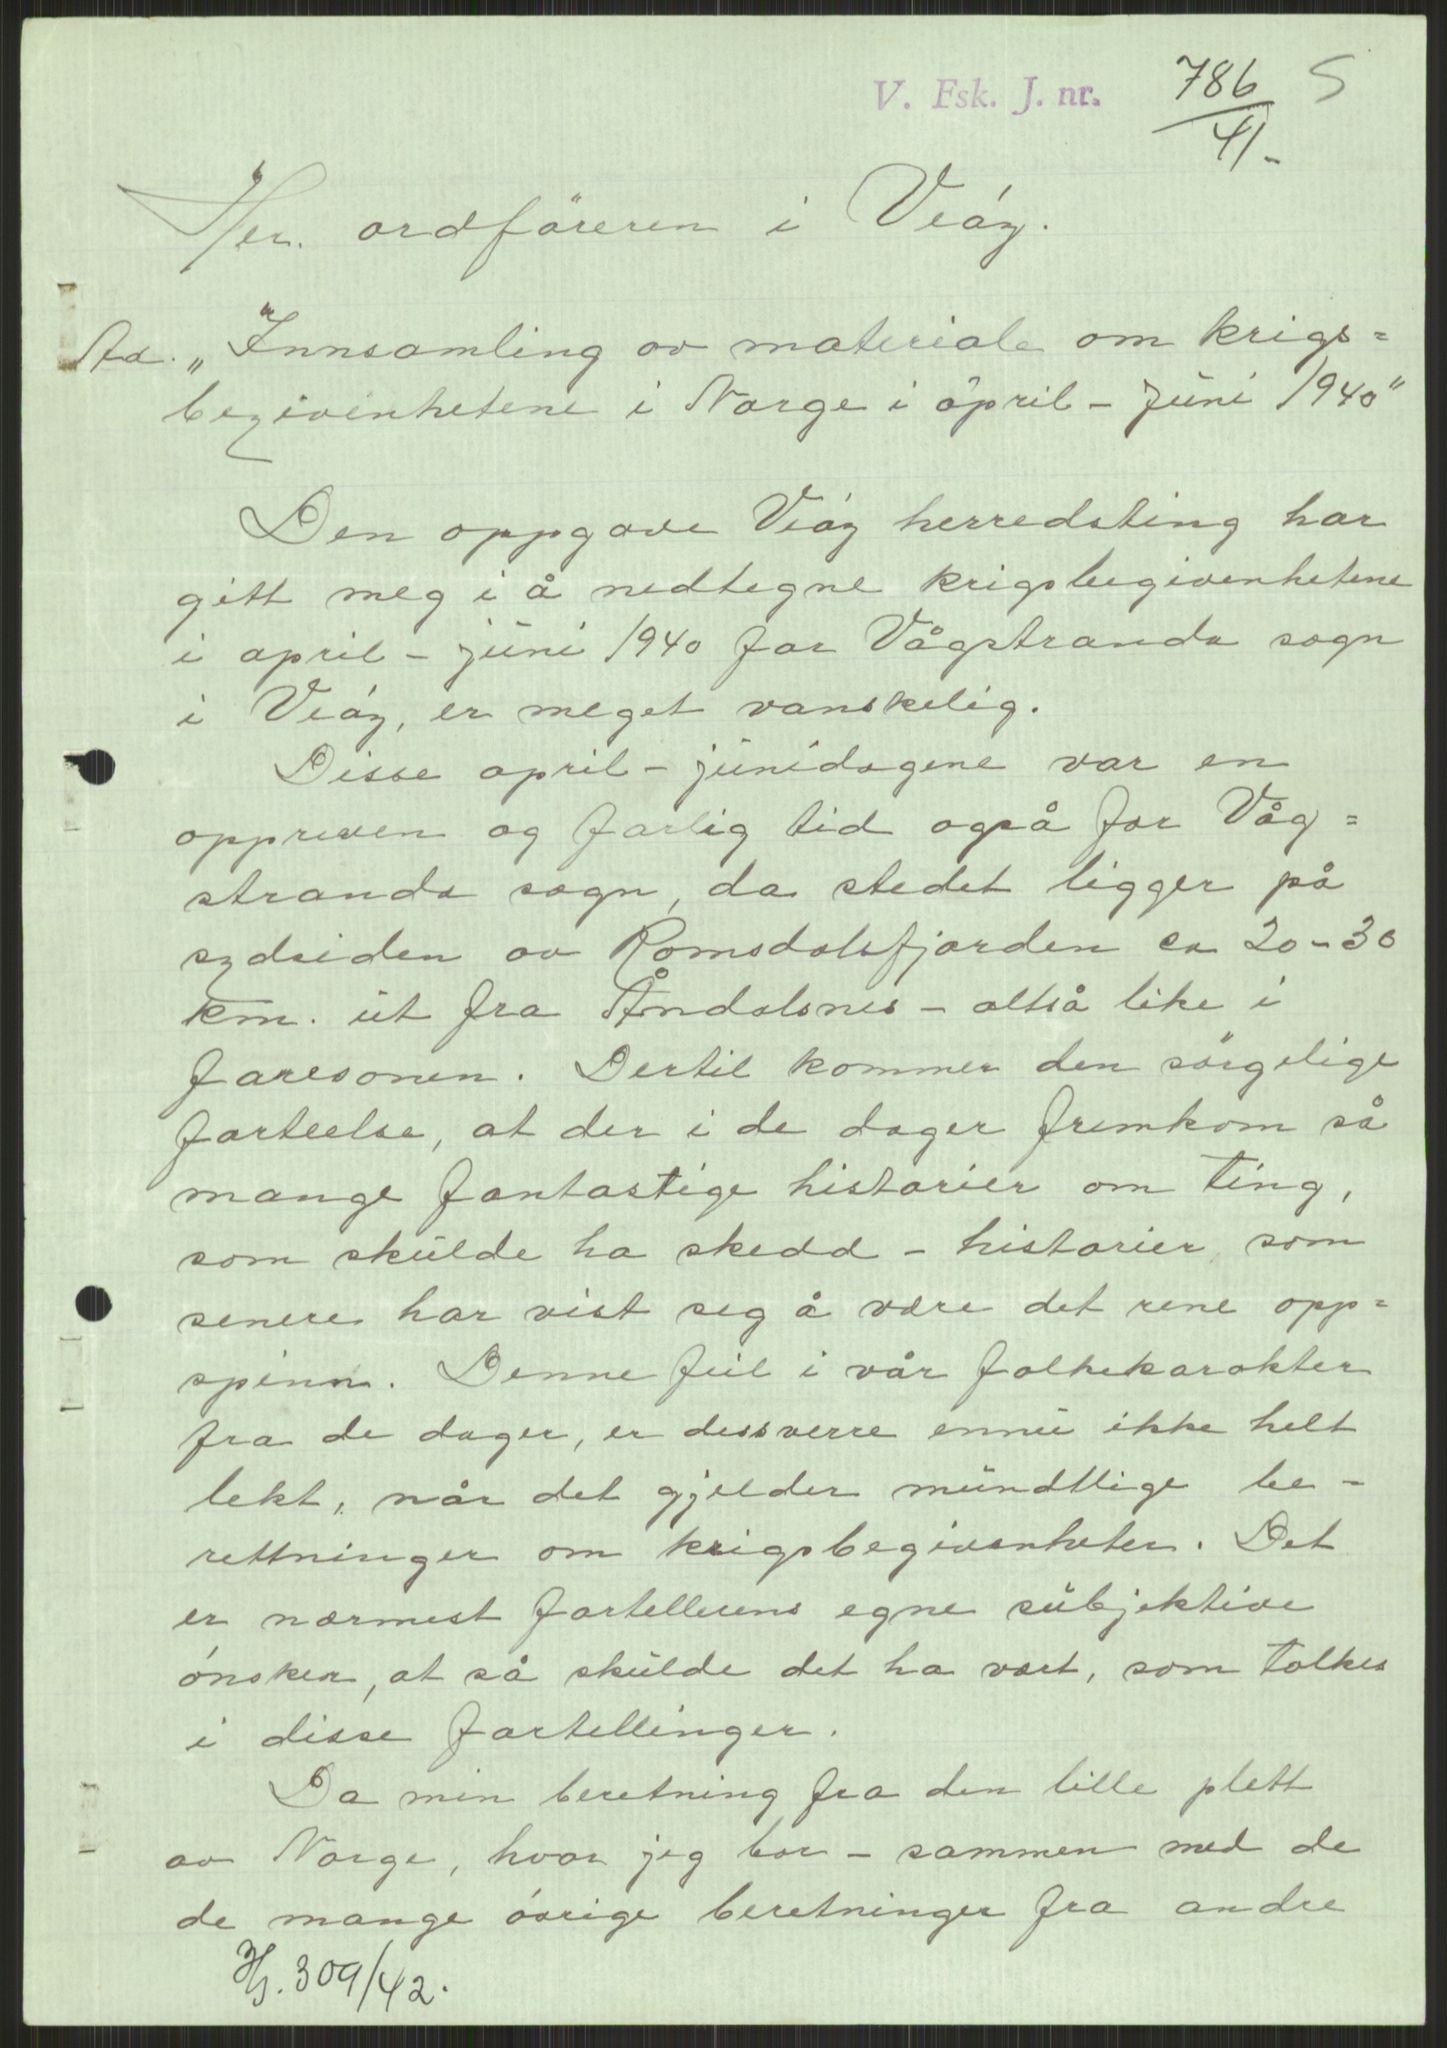 V. Fsk. J. nr. 786 S
41.-
Her. ordföreren i Veöy.
Ad. „Innsamling av materiale om krigs=
begivenhetene i Norge i april - juni 1940"
Den oppgave Veöy herredsting har
gitt meg i å nedtegne krigsbegivenhetene
i april - juni 1940 for Vågstranda sogn
i Veöy, er meget vanskelig.
Disse april - junidagene var en
oppreven og farlig tid også for Våg=
stranda sogn, da stedet ligger på
sydsiden av Romsdalsfjorden ca 20-30
km. ut fra Åndalsnes - altså like i
faresonen. Dertil kommer den sörgelige
forteelse, at der i de dager fremkom så
mange fantastige historier om ting,
som skulde ha skedd - historier, som
senere har vist seg å være det rene opp=
spinn. Denne feil i vår folkekarakter
fra de dager, er dessverre ennu ikke helt
lekt, når det gjelder mundtlige be-
rettninger om krigsbegivenheter. Det
er nærmest fortellerens egne subjektive
önsker, at så skulde det ha vært, som tolkes
i disse fortellinger.
Da min beretning fra den lille plett
av Norge, hvor jeg bor - sammen med de
de mange övrige beretninger fra andre
Hj. 309/42.